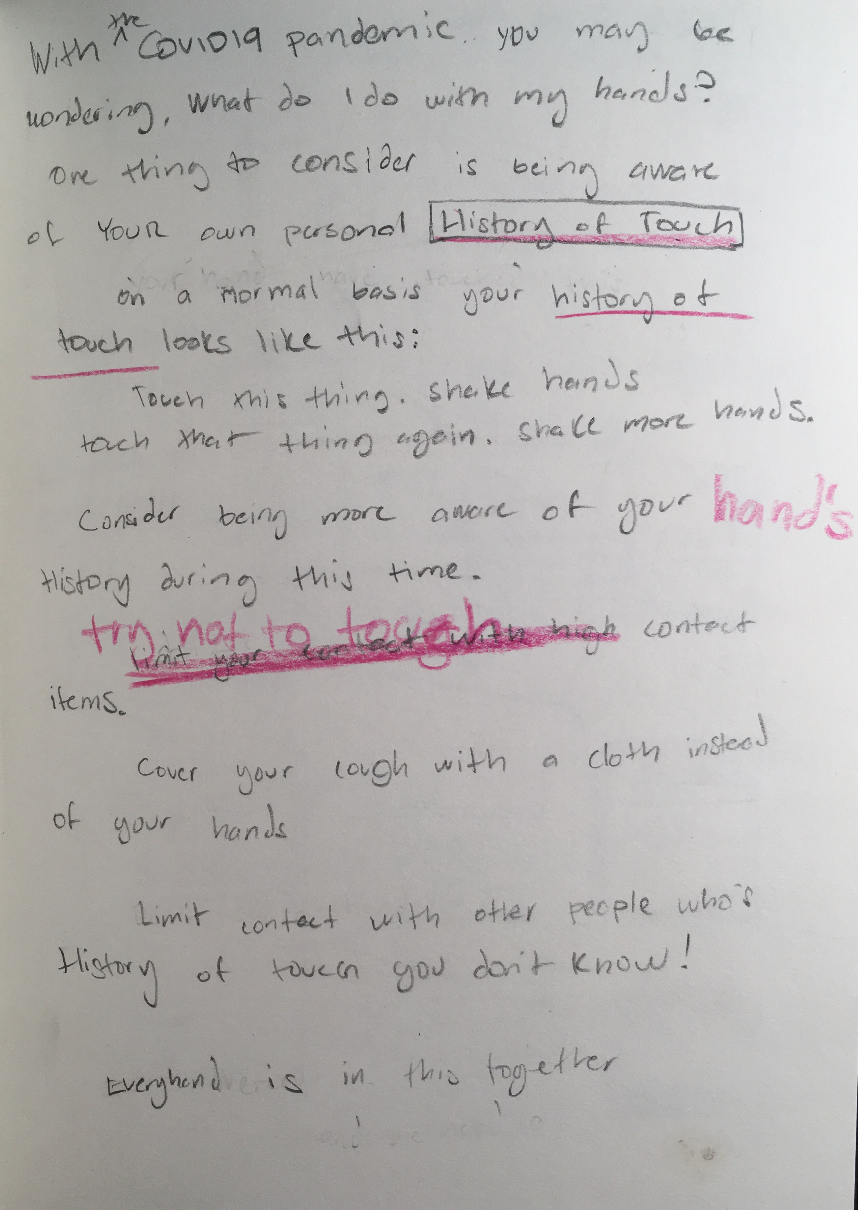 With the Covid19 pandemic. you may be
wondering, what do I do with my hands?
One thing to consider is being aware
of YOUR own personal History of Touch
on a normal basis your history of
touch looks like this:
Touch this thing. shake hands
touch that thing again. shake more hands.
Consider being more aware of your hand's
History during this time.
try not to tough
Limit your contact with high contact
items.
Cover your cough with a cloth instead
of your hands
Limit contact with other people who's
History of touch you don't know!
Everyhand is in this together